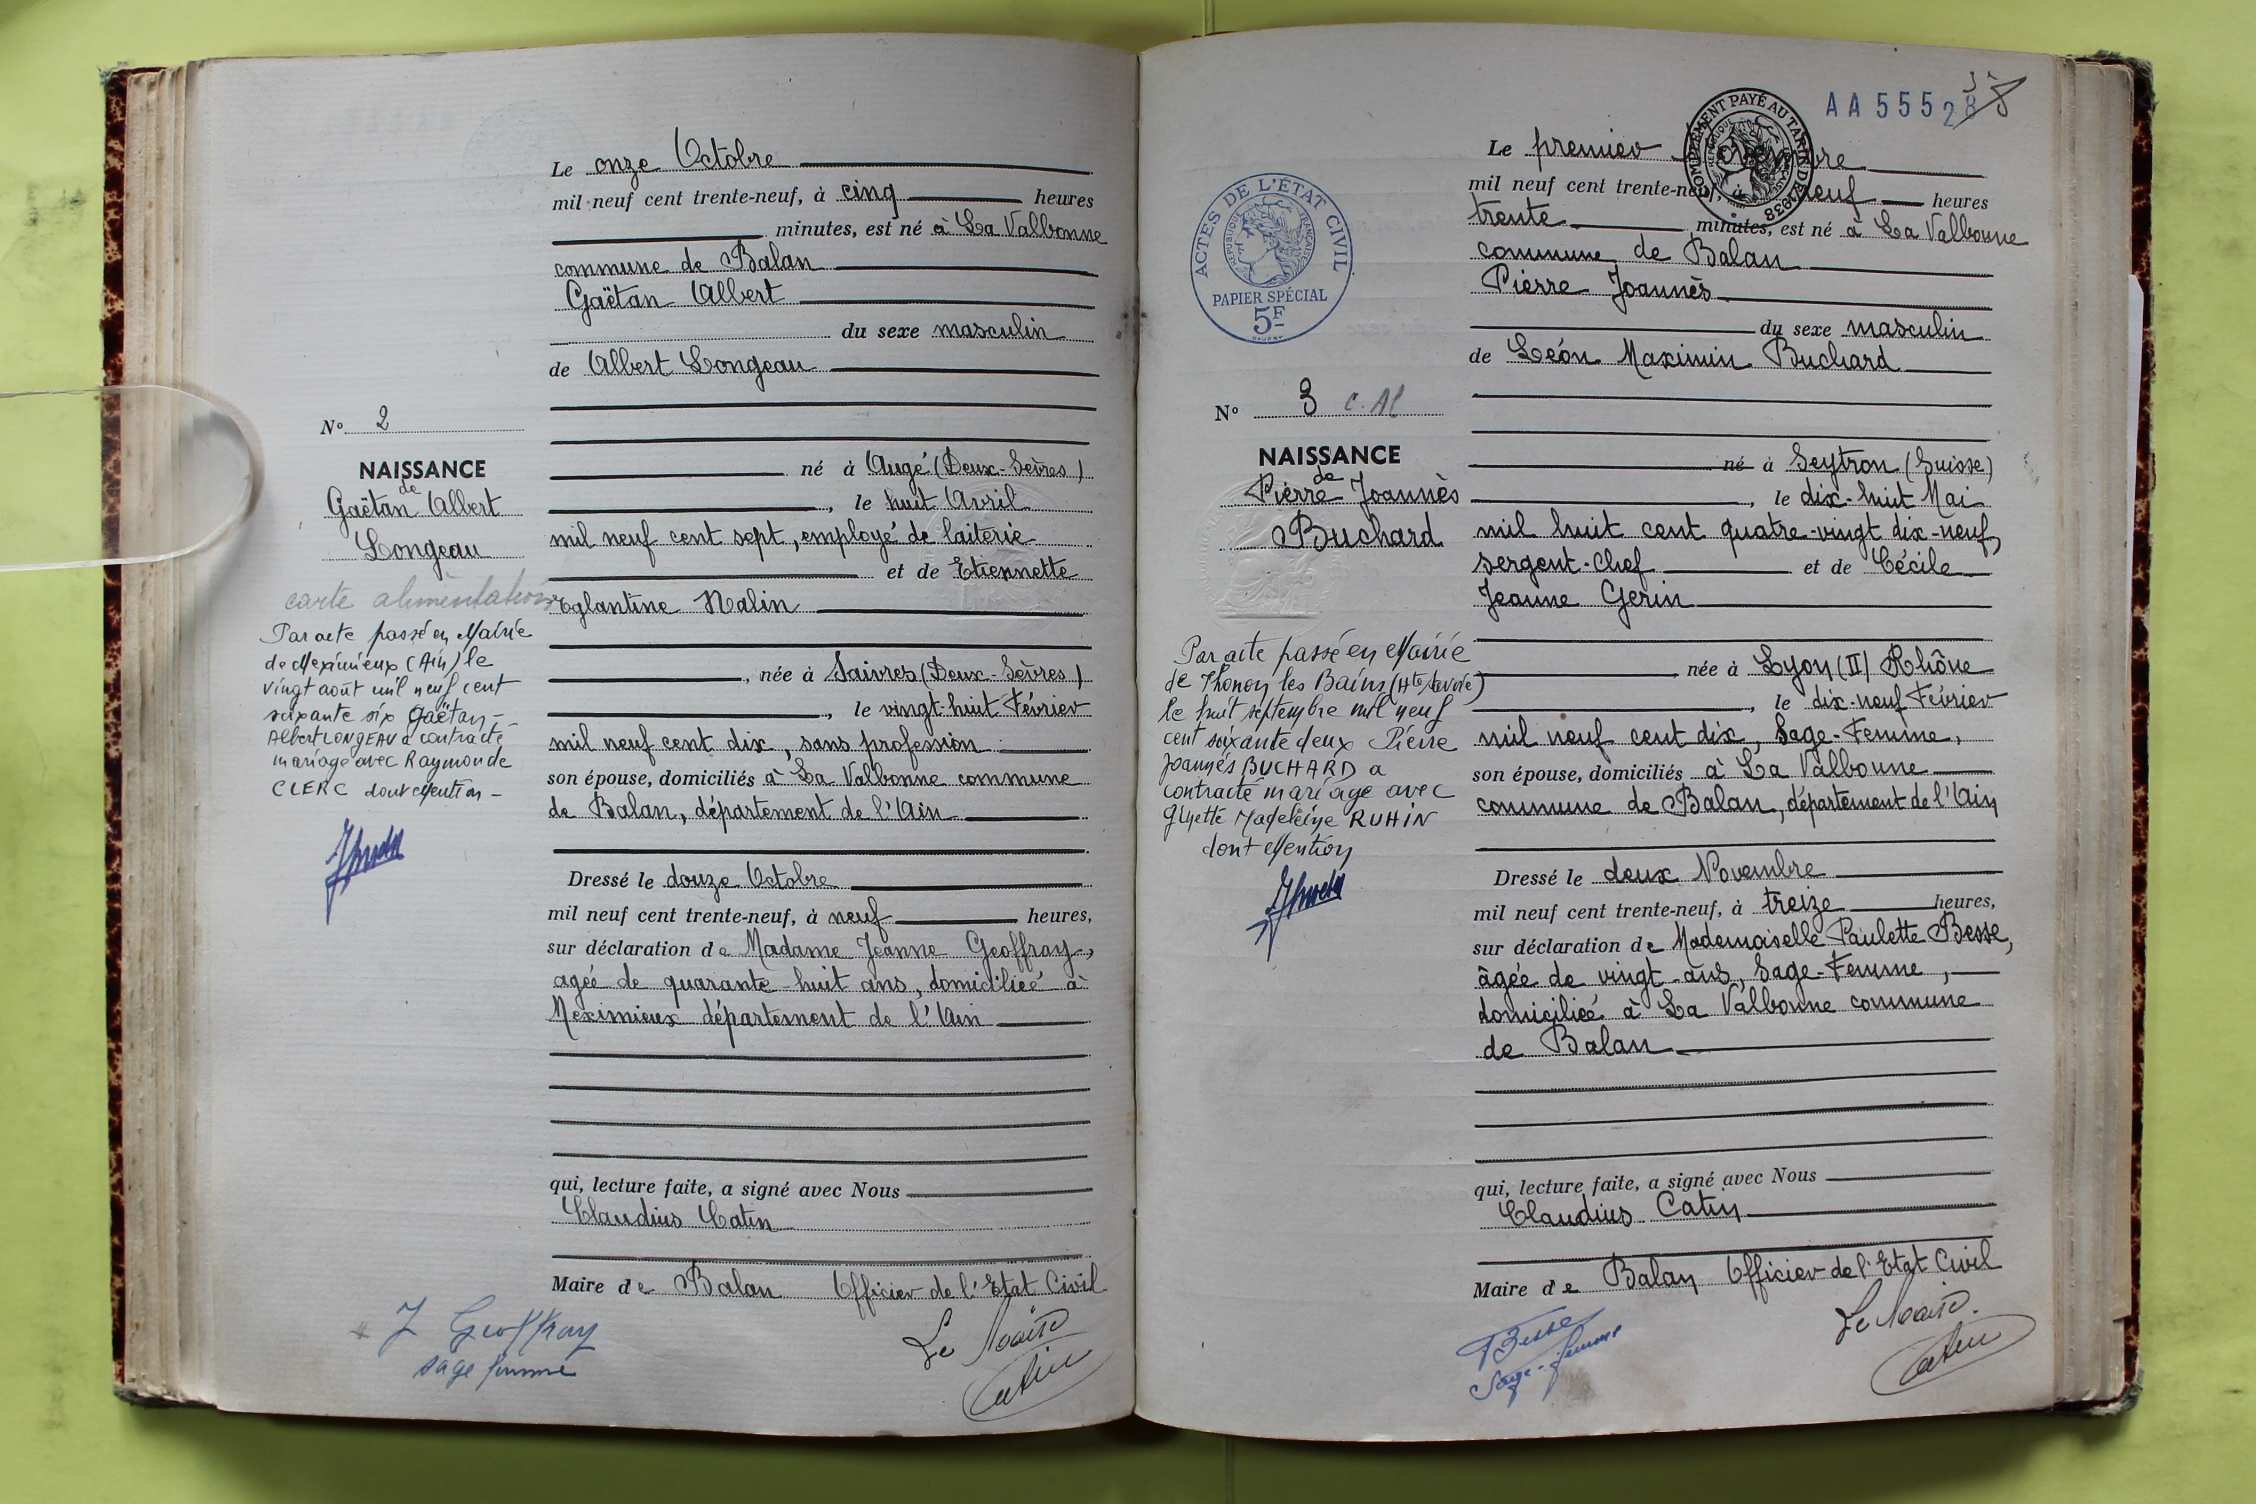 Le onze Octobre
mil neuf cent trente-neuf, à cinq heures
minutes, est né à La Valbonne
commune de Balan
Gaëtan Albert
du sexe masculin
de Albert Longeau
né à Augé (Deux-Sèvres)
, le huit Avril
mil neuf cent sept, employé de laiterie
et de Etiennette
Eglantine Nalin
, née à Saivres (Deux-Sèvres)
, le vingt-huit Février
mil neuf cent dix, sans profession
son épouse, domiciliés à La Valbonne commune
de Balan, département de l'Ain
Dressé le douze Octobre
mil neuf cent trente-neuf, à neuf heures,
sur déclaration de Madame Jeanne Geoffray,
agée de quarante-huit ans, domiciliée à
Meximieux département de l'Ain
qui, lecture faite, a signé avec Nous
Claudius Catin
Maire de Balan Officier de l'Etat Civil
J Geoffray
sage femme
Le Maire
Catin
N° 2
NAISSANCE
de
Gaëtan Albert
Longeau
carte alimentation
Par acte passé en Mairie
de Meximieux (Ain) le
vingt août mil neuf cent
soixante six Gaëtan -
Albert LONGEAU a contracté
mariage avec Raymonde
CLERC dont Mention -
AA 5552
ACTES DE L'ÉTAT CIVIL
RÉPUBLIQUE FRANÇAISE
PAPIER SPÉCIAL
5F
COMPLÉMENT PAYÉ AU TARIF DE 1938
N° 3 C. Al
NAISSANCE
de
Pierre Joannès
Buchard
Par acte passé en Mairie
de Thonon les Bains (Hte Savoie)
le huit septembre mil neuf
cent soixante deux Pierre
Joannès BUCHARD a
contracté mariage avec
Ginette Madeleine RUHIN
dont Mention
Le premier Novembre
mil neuf cent trente-neuf, à neuf heures
trente minutes, est né à La Valbonne
commune de Balan
Pierre Joannès
du sexe masculin
de Léon Maximin Buchard
né à Seytron (Suisse)
, le dix-huit Mai
mil huit cent quatre-vingt dix-neuf,
sergent-chef et de Cécile
Jeanne Gerin
née à Lyon (II) Rhône
, le dix-neuf Février
mil neuf cent dix, Sage-Femme,
son épouse, domiciliés à La Valbonne
commune de Balan, département de l'Ain
Dressé le deux Novembre
mil neuf cent trente-neuf, à treize heures,
sur déclaration de Mademoiselle Paulette Besse,
âgée de vingt-ans, Sage-Femme,
domiciliée à La Valbonne commune
de Balan
qui, lecture faite, a signé avec Nous
Claudius Catin
Maire de Balan Officier de l'Etat Civil
PBesse
Sage-femme
Le Maire.
Catin